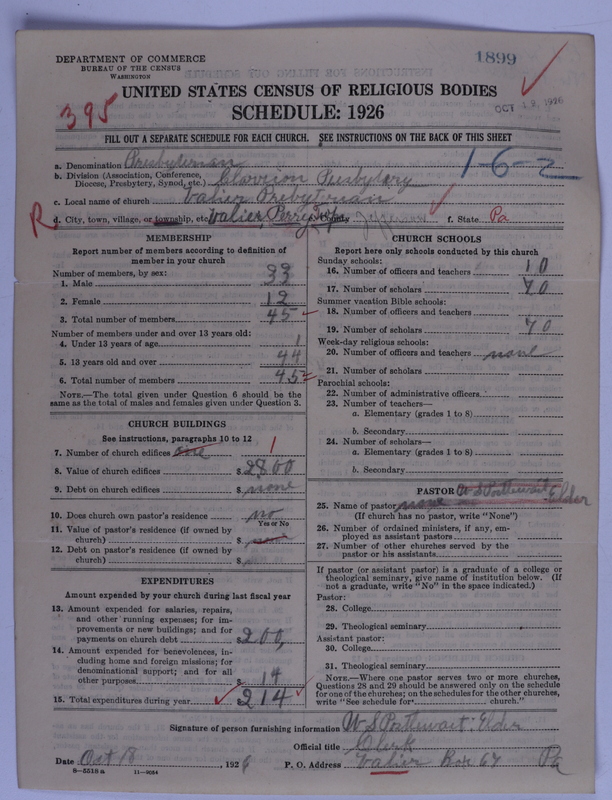 DEPARTMENT OF COMMERCE
BUREAU OF THE CENSUS
WASHINGTON
1899
OCT 12 1926
395
UNITED STATES CENSUS OF RELIGIOUS BODIES
SCHEDULE: 1926
FILL OUT A SEPARATE SCHEDULE FOR EACH CHURCH. SEE INSTRUCTIONS ON THE BACK OF THIS SHEET
1-6-2
a. Denomination Presbyterian
b. Division (Association, Conference, Diocese, Presbytery, Synod, etc.) Clarion Presbytery
c. Local name of church Valier Presbyterian
R
d. City, town, village, or township, etc. Valier, Perry Twp. Jefferson f. State Pa
MEMBERSHIP
Report number of members according to definition of
member in your church
Number of members, by sex:
1. Male 33
2. Female 12
3. Total number of members 45
Number of members under and over 13 years old:
4. Under 13 years of age 1
5. 13 years old and over 44
6. Total number of members 45
NOTE.—The total given under Question 6 should be
same as the total of males and females given under Question 3.
CHURCH BUILDINGS
See instructions, paragraphs 10 to 12
7. Number of church edifices one 1
8. Value of church edifices $2800
9. Debt on church edifices $none
10. Does church own pastor's residence no
Yes or No
11. Value of pastor's residence (if owned by
church) $none
12. Debt on pastor's residence (if owned by
church) $
EXPENDITURES
Amount expended by your church during last fiscal year
13. Amount expended for salaries, repairs,
and other running expenses; for im-
provements or new buildings; and for
payments on church debt $200,
14. Amount expended for benevolences, in-
cluding home and foreign missions; for
denominational support; and for all
other purposes $14
15. Total expenditures during year $214
CHURCH SCHOOLS
Report here only schools conducted by this church
Sunday schools:
16. Number of officers and teachers 10
17. Number of scholars 70
Summer vacation Bible schools:
18. Number of officers and teachers
19. Number of scholars 70
Week-day religious schools:
20. Number of officers and teachers none
21. Number of scholars
Parochial schools:
22. Number of administrative officers
23. Number of teachers—
a. Elementary (grades 1 to 8)
b. Secondary
24. Number of scholars—
a. Elementary (grades 1 to 8)
b. Secondary
PASTOR W S Postlewait Elder
25. Name of pastor none
(If church has no pastor, write "None")
26. Number of ordained ministers, if any, em-
ployed as assistant pastors
27. Number of other churches served by the
pastor or his assistants
If pastor (or assistant pastor) is a graduate of a college or
theological seminary, give name of institution below. (If
not a graduate, write "No" in the space indicated.)
Pastor:
28. College
29. Theological seminary
Assistant pastor:
30. College
31. Theological seminary
NOTE.—Where one pastor serves two or more churches,
Questions 28 and 29 should be answered only on the schedule
for one of the churches; on the schedules for the other churches,
write "See schedule for church."
Signature of person furnishing information W S Postlewait, Elder
Official title Clerk
Date Oct 8, 1926 P. O. Address Valier Box 67 Pa
8—5518 a 11—9084